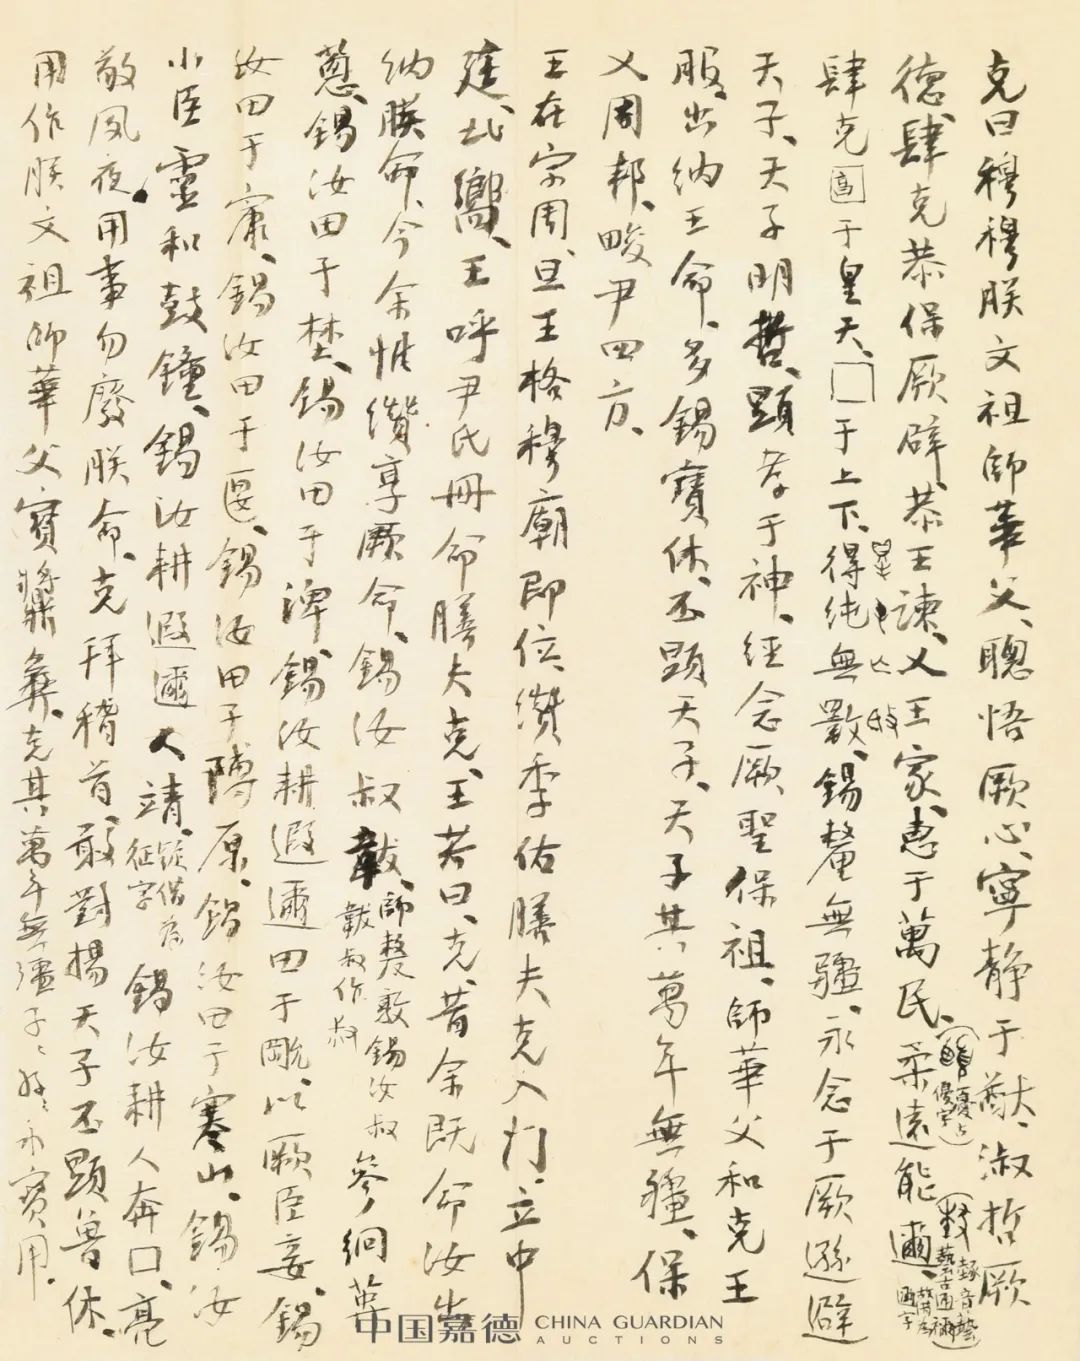 克曰穆穆朕文祖師華父、聰悟厥心、寧静于猷、淑哲厥
德、肆克恭保厥辟、恭王諫、乂王家、惠于萬民、柔遠能邇、
肆克圁于皇天、囗于上下、得純無斁、錫釐無疆、永念于厥遜避
天子、天子明哲、顯孝于神、經念厥聖保祖、師華父和克王
服、出納王命、多錫寶休、丕顯天子、天子其萬年無疆、保
乂周邦、畯尹四方、
王在宗周、旦王格穆廟即位、纘季佑膳夫克入门、立中
廷、北嚮、王呼尹氏冊命膳夫克、王若曰、克、昔余既命汝出
納朕命、今余惟纘享厥命、錫汝叔韍、參絅葟
師嫠敦錫汝叔
韍叔作𡭴
蔥、錫汝田于埜、錫汝田于渒、錫汝耕遐邇田于𠭯、以厥臣妾、錫
汝田于康、錫汝田于匽、錫汝田于陴原、錫汝田于寒山、錫汝
小臣霝和鼓鐘、錫汝耕遐邇人靖、錫汝耕人奔囗、亮
征字
敬夙夜、用事勿廢朕命、克拜稽首、敢對揚天子丕顯魯休、
用作朕文祖師華父寶𩰬彝、克其萬年無疆子々孫々永寶用、
中国嘉德 CHINA GUARDIAN
AUCTIONS